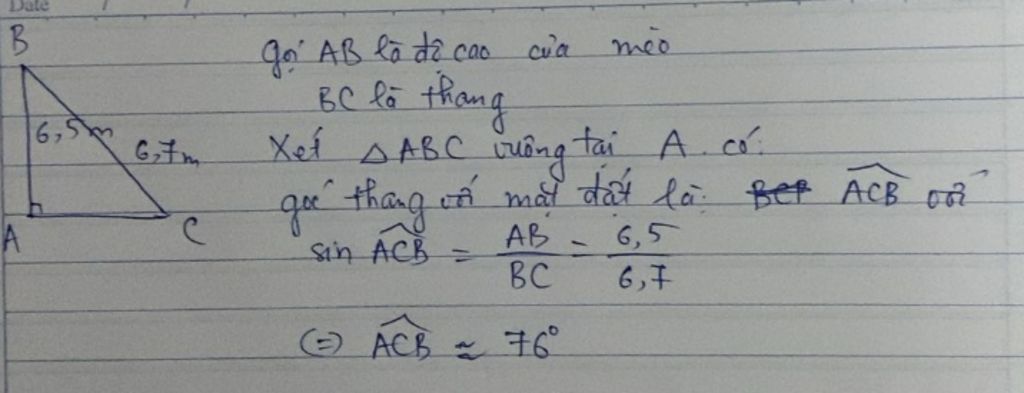 Date / /
B
Gọi AB là độ cao của mèo
BC là thang
6,5m
6,7m
Xét △ABC vuông tại A có:
góc thang với mặt đất là: ACB với
A
C
sin ACB = AB/BC = 6,5/6,7
(=) ACB ≈ 76°